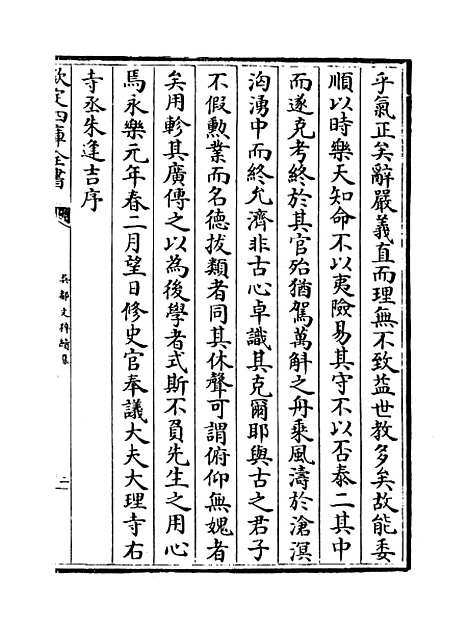 乎氣正矣辭嚴義直而理無不致益世教多矣故能委
順以時樂天知命不以夷險易其守不以否泰二其中
而遂克考終於其官殆猶駕萬斛之舟乘風濤於滄溟
洶湧中而終允濟非古心卓識其克爾耶與古之君子
不假勲業而名德拔類者同其休聲可謂俯仰無媿者
矣用軫其廣傳之以為後學者式斯不負先生之用心
焉永樂元年春二月望日修史官奉議大夫大理寺右
寺丞朱逢吉序
欽定四庫全書
吳都文粹續集
二